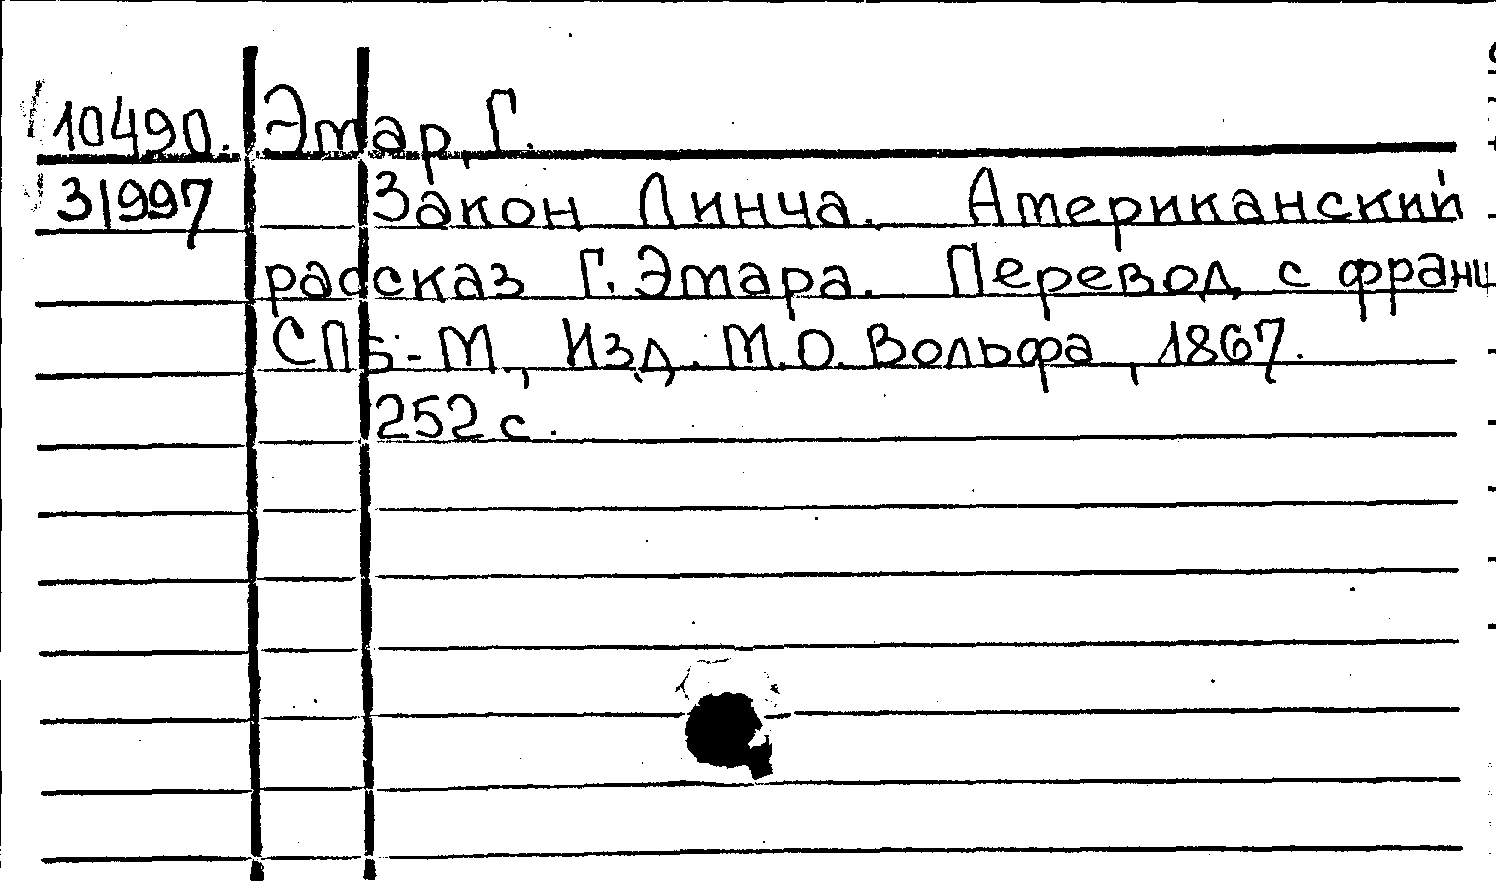 10490. Эмар, Г.
31997 Закон Линча. Американский
рассказ Г. Эмара. Перевод с франц
СПб-М, Изд. М.О. Вольфа, 1867.
252 с.